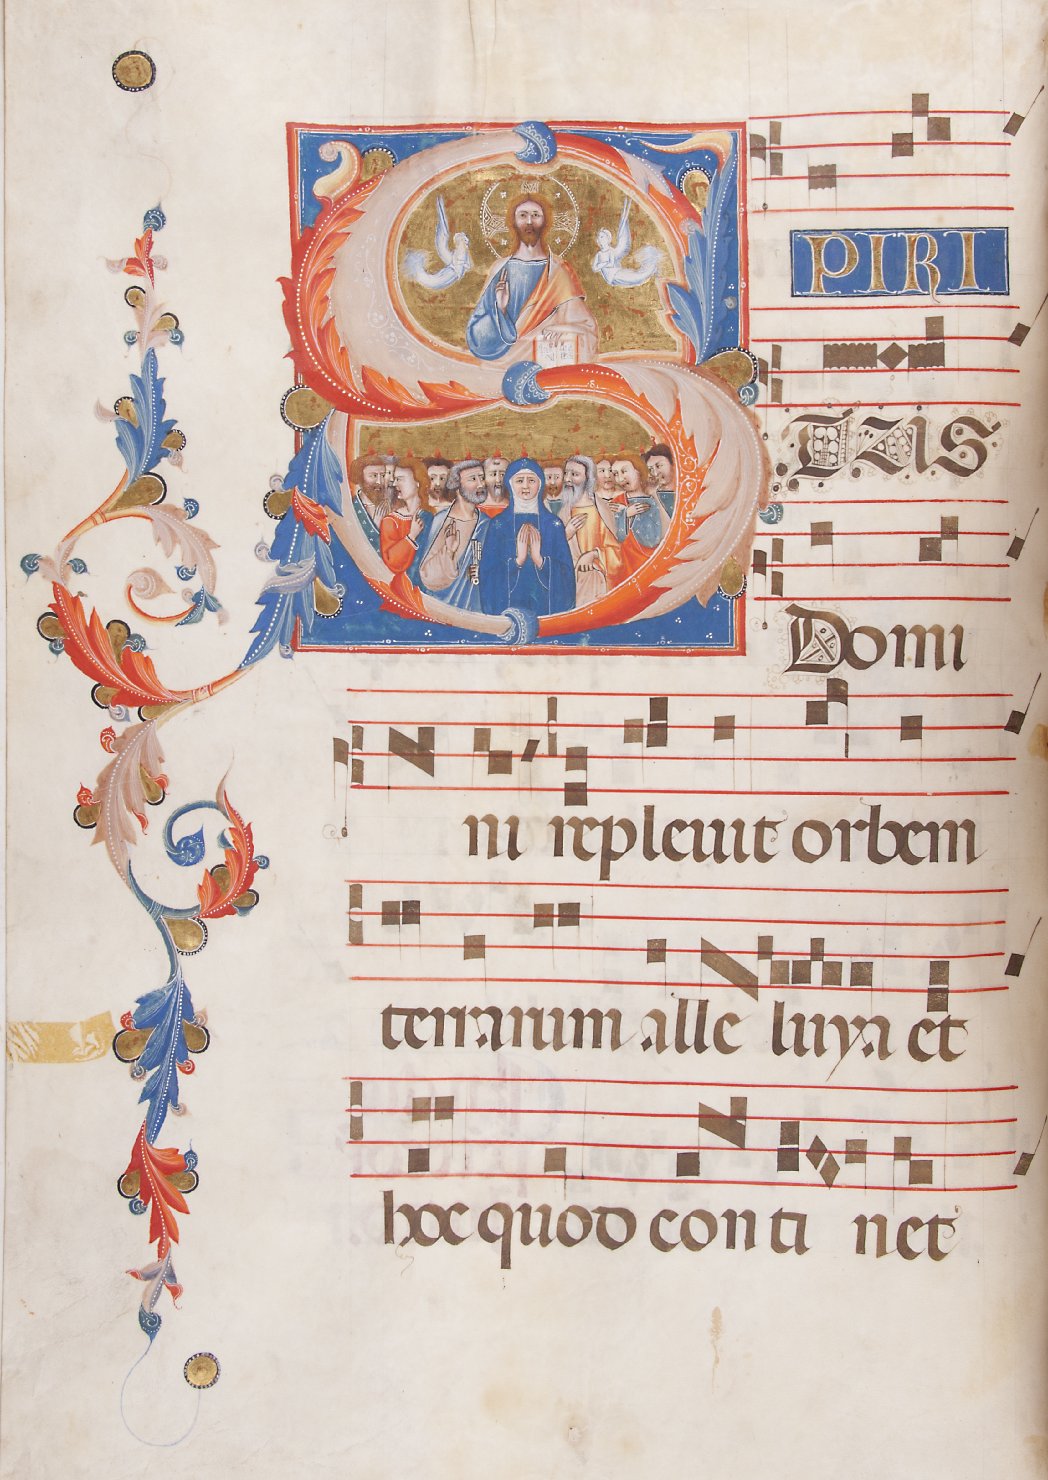 SPIRI
TUS
Domi
ni repleuit orbem
terrarum alle luya et
hoc quod conti net